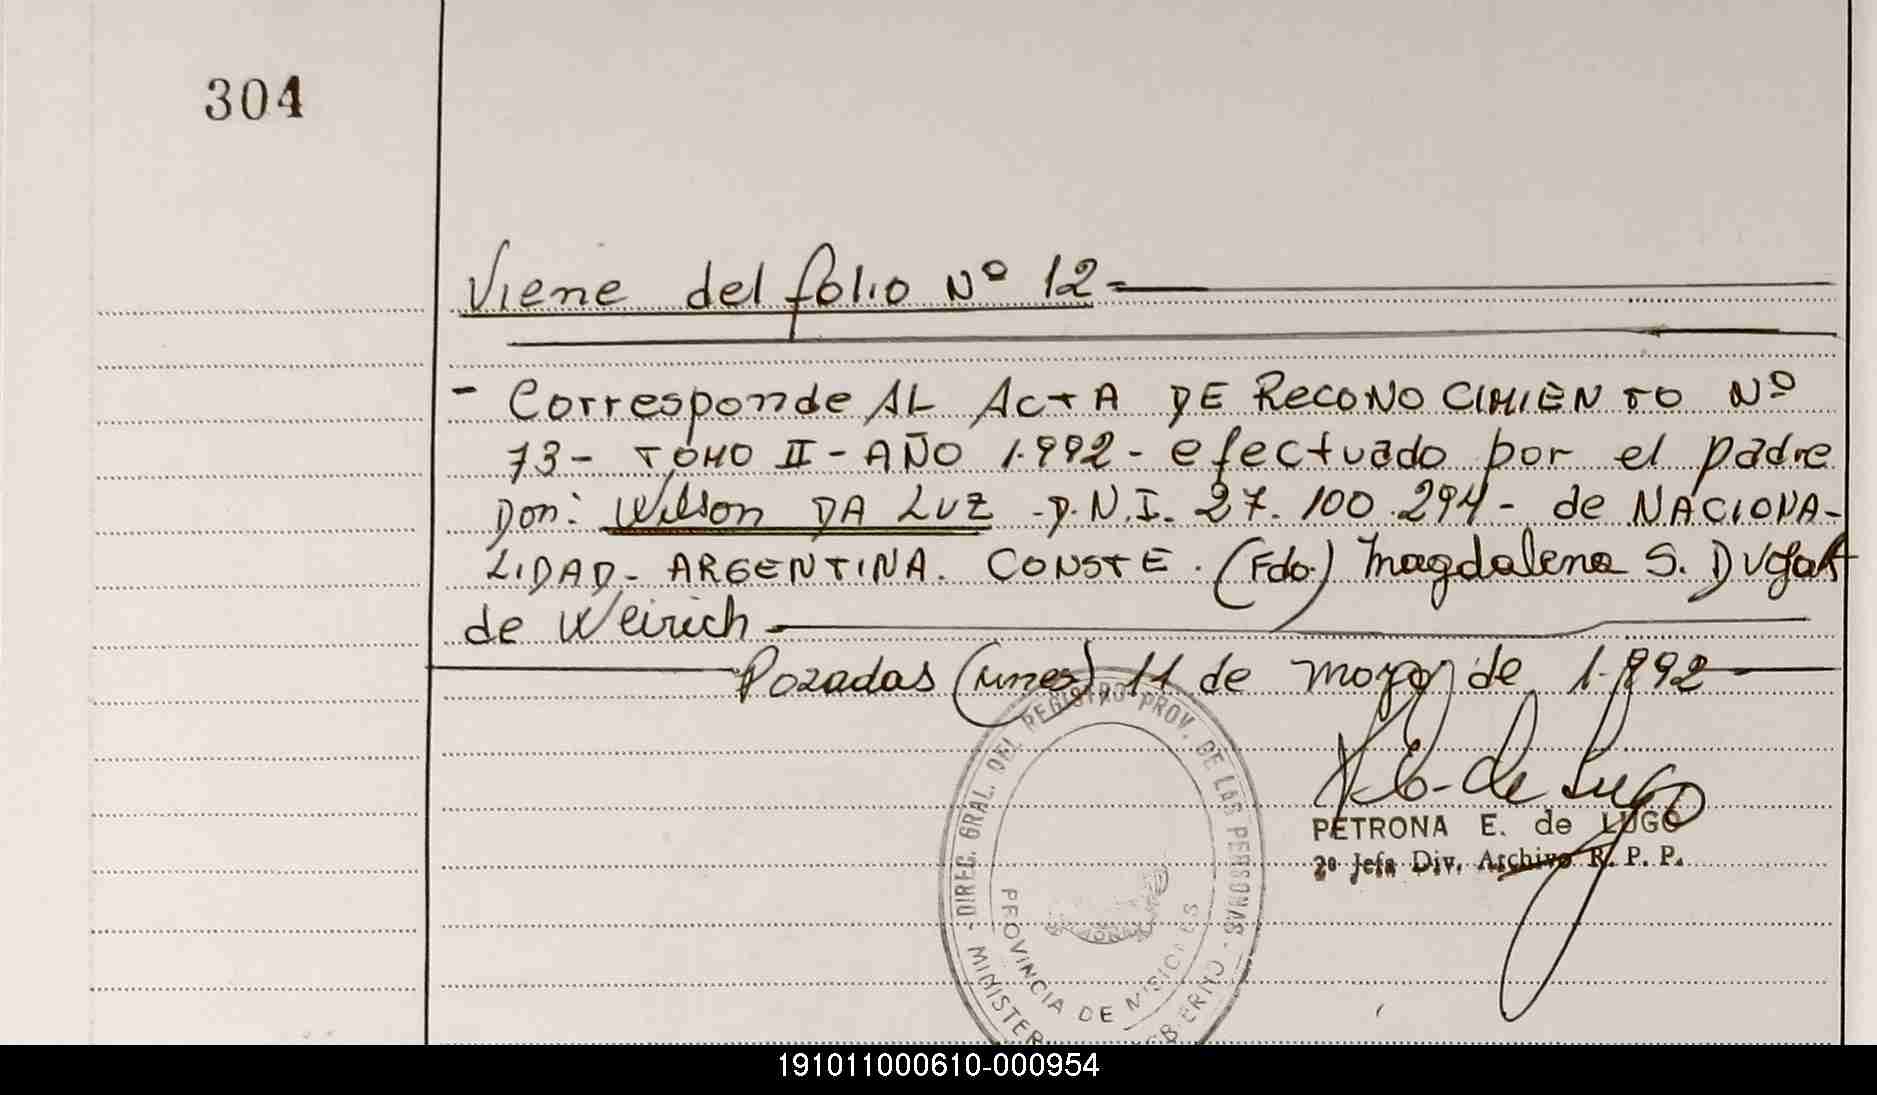 304
Viene del folio Nº 12 -
- Corresponde AL ACTA DE RECONOCIMIENTO Nº
73 - TOMO II - AÑO 1.992 - efectuado por el padre
Don: Wilson DA LUZ - D.N.I. 27.100.294 - de NACIONA-
LIDAD - ARGENTINA. CONSTE. (Fdo.) Magdalena S. Dugalt
de Weirich
Posadas (Mnes) 11 de mayo de 1.992
PETRONA E. de LUGO
2º Jefa Div. Archivo R. P. P.
- DIREC. GRAL. DEL REGISTRO PROV. DE LAS PERSONAS -
PROVINCIA DE MISIONES
191011000610-000954